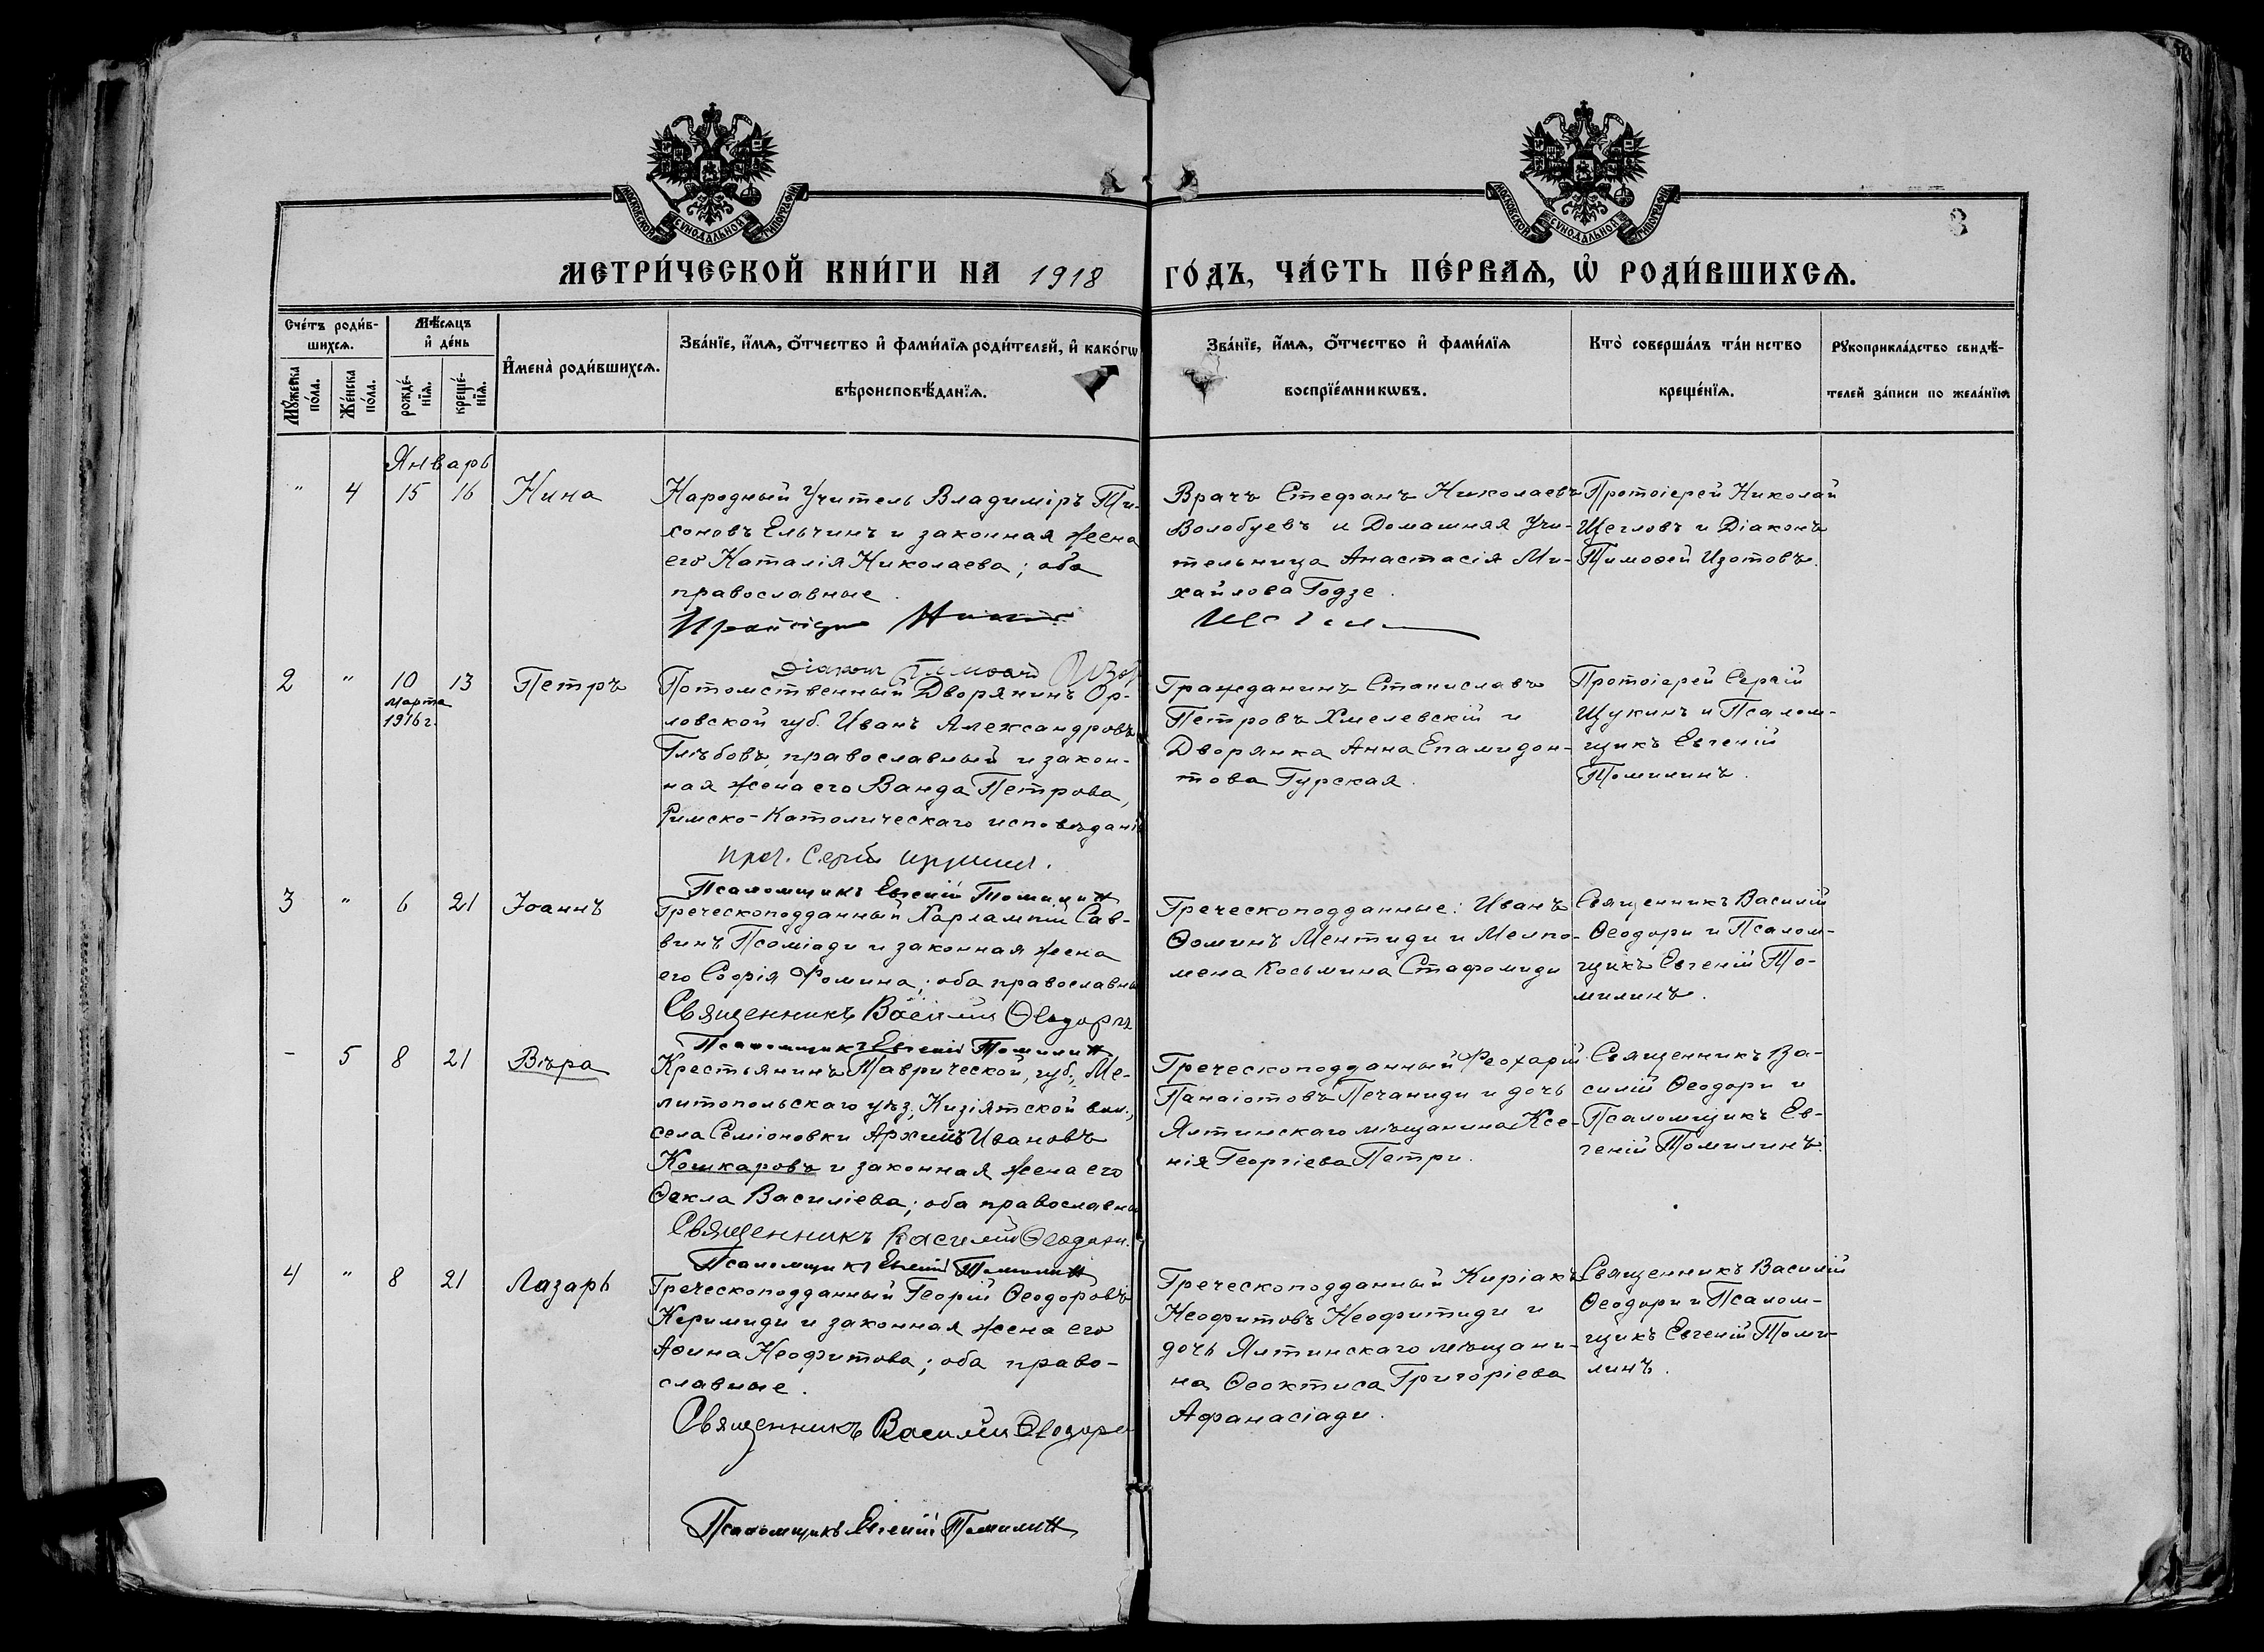 МОСКОВСКОЙ СѴНОДАЛЬНОЙ ТИПОГРАФІИ
МОСКОВСКОЙ СѴНОДАЛЬНОЙ ТИПОГРАФІИ
3
МЕТРИ́ЧЕСКОЙ КНИ́ГИ НА 1918 ГО́ДЪ, ЧА́СТЬ ПЕ́РВАѦ, Ѡ҆ РОДИ́ВШИХСѦ.
Сче́тъ роди́в-
шихсѧ.
Мѣ́сѧцъ
и҆ де́нь
Мꙋ́жеска
по́ла.
Же́нска
по́ла.
рожде́-
нїѧ.
креще́-
нїѧ.
И҆мена̀ роди́вшихсѧ.
Зва́нїе, и҆́мѧ, ѻ҆́тчество и҆ фами́лїѧ роди́телей, и҆ како́гѡ
вѣроисповѣ́данїѧ.
Зва́нїе, и҆́мѧ, ѻ҆́тчество и҆ фами́лїѧ
воспрїе́мникѡвъ.
Кто̀ соверша́лъ та́инство
креще́нїѧ.
Рꙋкоприкла́дство свидѣ́-
телей за́писи по жела́нїю
Январь
" 4 15 16 Нина
Народный Учитель Владиміръ Ти-
хоновъ Ельчинъ и законная жена
его Наталія Николаева; оба
православные.
Врачъ Стефанъ Николаевъ
Волобуевъ и Домашняя Учи-
тельница Анастасія Ми-
хайлова Годзе.
Протоіерей Николай
Щегловъ и Діаконъ
Тимоѳей Изотовъ.
Діаконъ Тимоѳей
2 " 10 13 Петръ
марта
1916 г.
Потомственный Дворянинъ Ор-
ловской губ. Иванъ Александровъ
Глѣбовъ, православный и закон-
ная жена его Ванда Петрова,
Римско-Католическаго исповѣданія
Гражданинъ Станиславъ
Петровъ Хмелевскій и
Дворянка Анна Епамидон-
това Гурская.
Протоіерей Сергій
Щукинъ и Псалом-
щикъ Евгеній
Томилинъ.
Прот. Сергій Щукинъ.
Псаломщикъ Евгеній Томилин
3 " 6 21 Іоаннъ
Греческоподданный Харлампій Сав-
винъ Псоміади и законная жена
его Софія Фомина; оба православны
Греческоподданные: Иванъ
Ѳоминъ Ментиди и Мелпо-
мена Косьмина Стафомиди
Священникъ Василій
Ѳеодори и Псалом-
щикъ Евгеній То-
милинъ.
Священникъ Василій Ѳеодори
Псаломщикъ Евгеній Томилин
- 5 8 21 Вѣра
Крестьянинъ Таврической губ., Ме-
литопольскаго уѣз., Кизіятской вол.,
села Семіоновки Архипъ Ивановъ
Кошкаровъ и законная жена его
Ѳекла Василіева; оба православны
Греческоподданный Феохарій
Панаіотовъ Печаниди и дочь
Ялтинскаго мѣщанина Ксе-
нія Георгіева Петри.
Священникъ Ва-
силій Ѳеодори и
Псаломщикъ Ев-
геній Томилинъ.
Священникъ Василій Ѳеодори.
Псаломщикъ Евгеній Томилин
4 " 8 21 Лазарь
Греческоподданный Георгій Ѳеодоровъ
Керимиди и законная жена его
Аѳина Неофитова; оба право-
славные.
Греческоподданный Киріакъ
Неофитовъ Неофитиди и
дочь Ялтинскаго мѣщани-
на Ѳеоктиса Григоріева
Афанасіади.
Священникъ Василій
Ѳеодори и Псалом-
щикъ Евгеній Томи-
линъ.
Священникъ Василій Ѳеодори
Псаломщикъ Евгеній Томилин